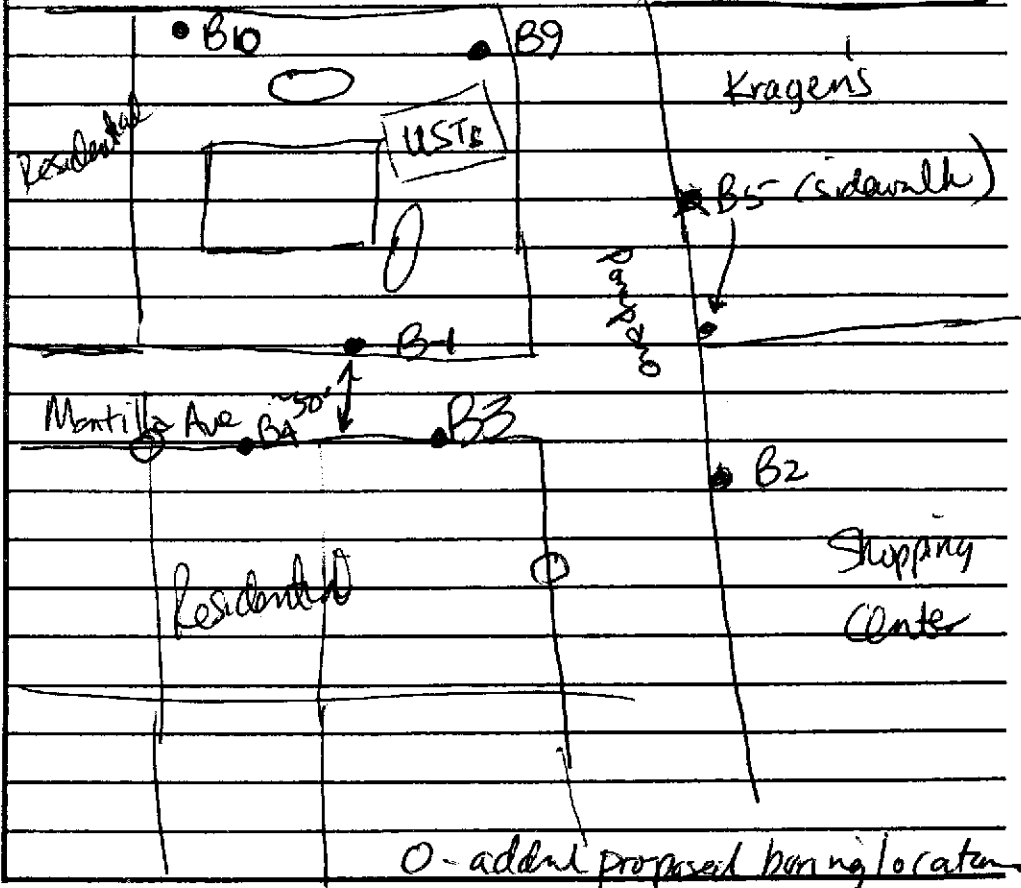 B10
B9
Kragens
Residential
USTs
B5 (sidewalk)
B-1
~50'
Montilla Ave
B4
B3
B2
Residential
Shopping
Center
O - addnl proposed boring location